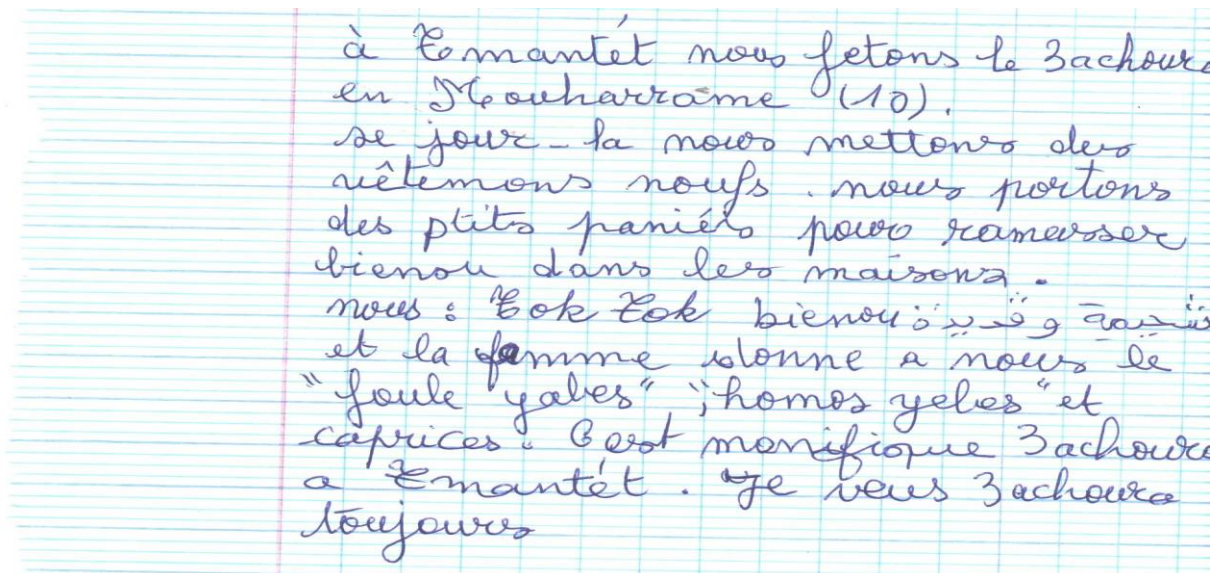 à Tmantét nous fetons le 3achoura
en Mouharrame (10).
se jour-la nous mettons des
vêtemons noufs. nous portons
des ptits paniéts pour ramasser
bienou dans les maisons.
nous : Tok Tok bienou : شحمة و قديدة
et la femme donne a nous le
"foule yabes" ; "homos yebes" et
caprices. C'est manifique 3achoura
a Tmantét. Je veus 3achoura
toujours